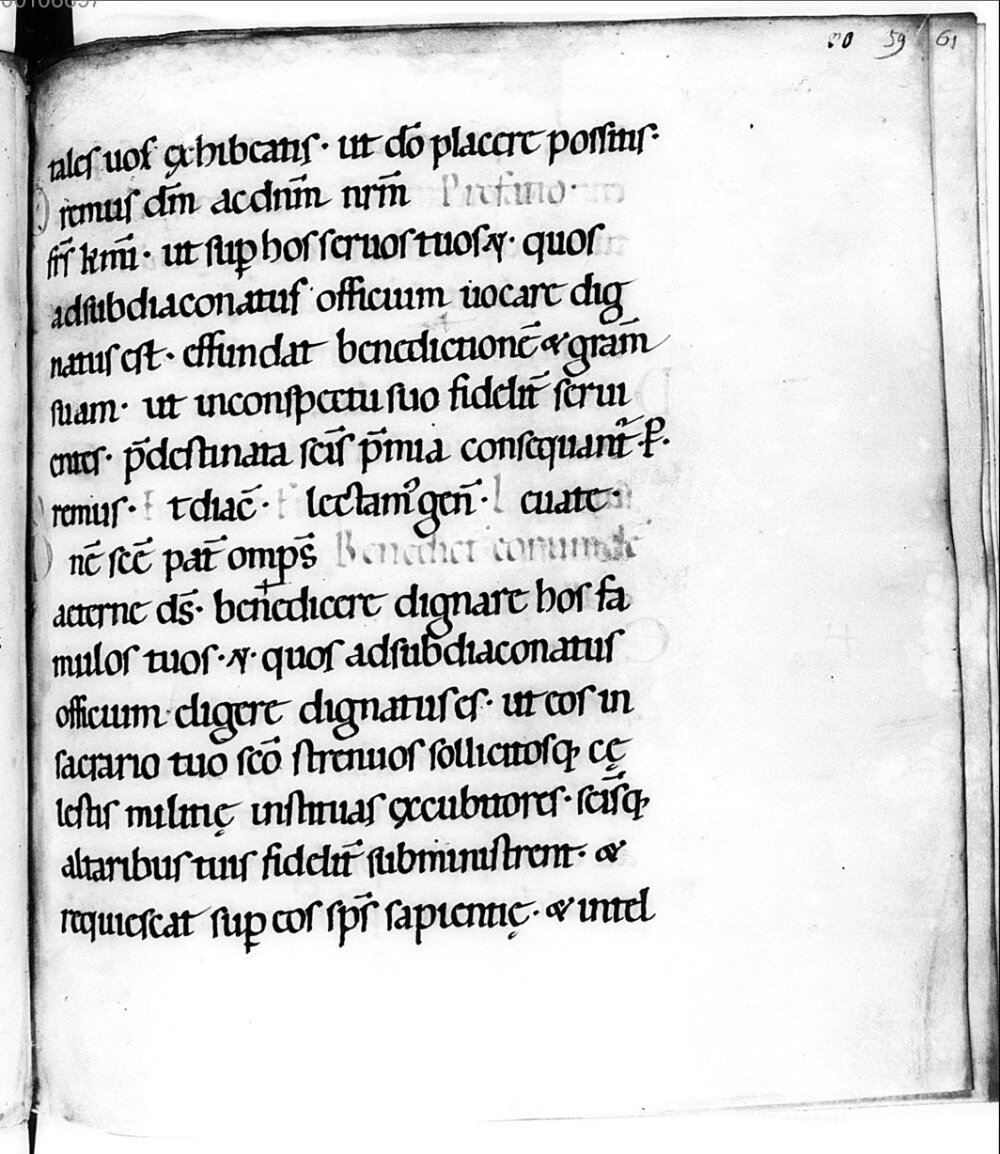 60 59 61
tales uos exhibeatis · ut dō placere possitis ·
Oremus dm̄ ac dnm̄ nrm̄
frs̄ kmi̅ · ut sup̱ hos seruos tuos · quos
ad subdiaconatus officium uocare dig
natus est · effundat benedictionē & gram̄
suam · ut in conspectu suo fidelit̄ serui
entes · p̄destinata scīs p̄mia consequant̄ · P̄ ·
Oremus · diac̄ · Flectam᷒ gen̄ · Leuate ·
Dnē scē pat̄ omps̄ Benedict
aeterne ds̄ · ben✝edicere dignare hos fa
mulos tuos · quos ad subdiaconatus
officium eligere dignatus es · ut eos in
sacrario tuo scō strenuos sollicitosq; cę
lestis militię instituas excubitores · scīsq;
altaribus tuis fidelit̄ subministrent · &
requiescat sup̱ eos sps̄ sapientię · & intel